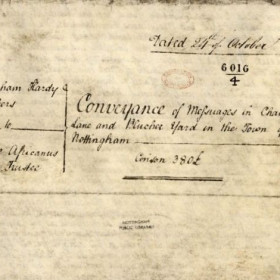 Dated 24th of October
6016
4
ham Hardy
ers
to
Africanus
Trustee
Conveyance of Messuages in Cha
Lane and Blucher Yard in the Town
Nottingham
Conson 380£
NOTTINGHAM
PUBLIC LIBRARIES